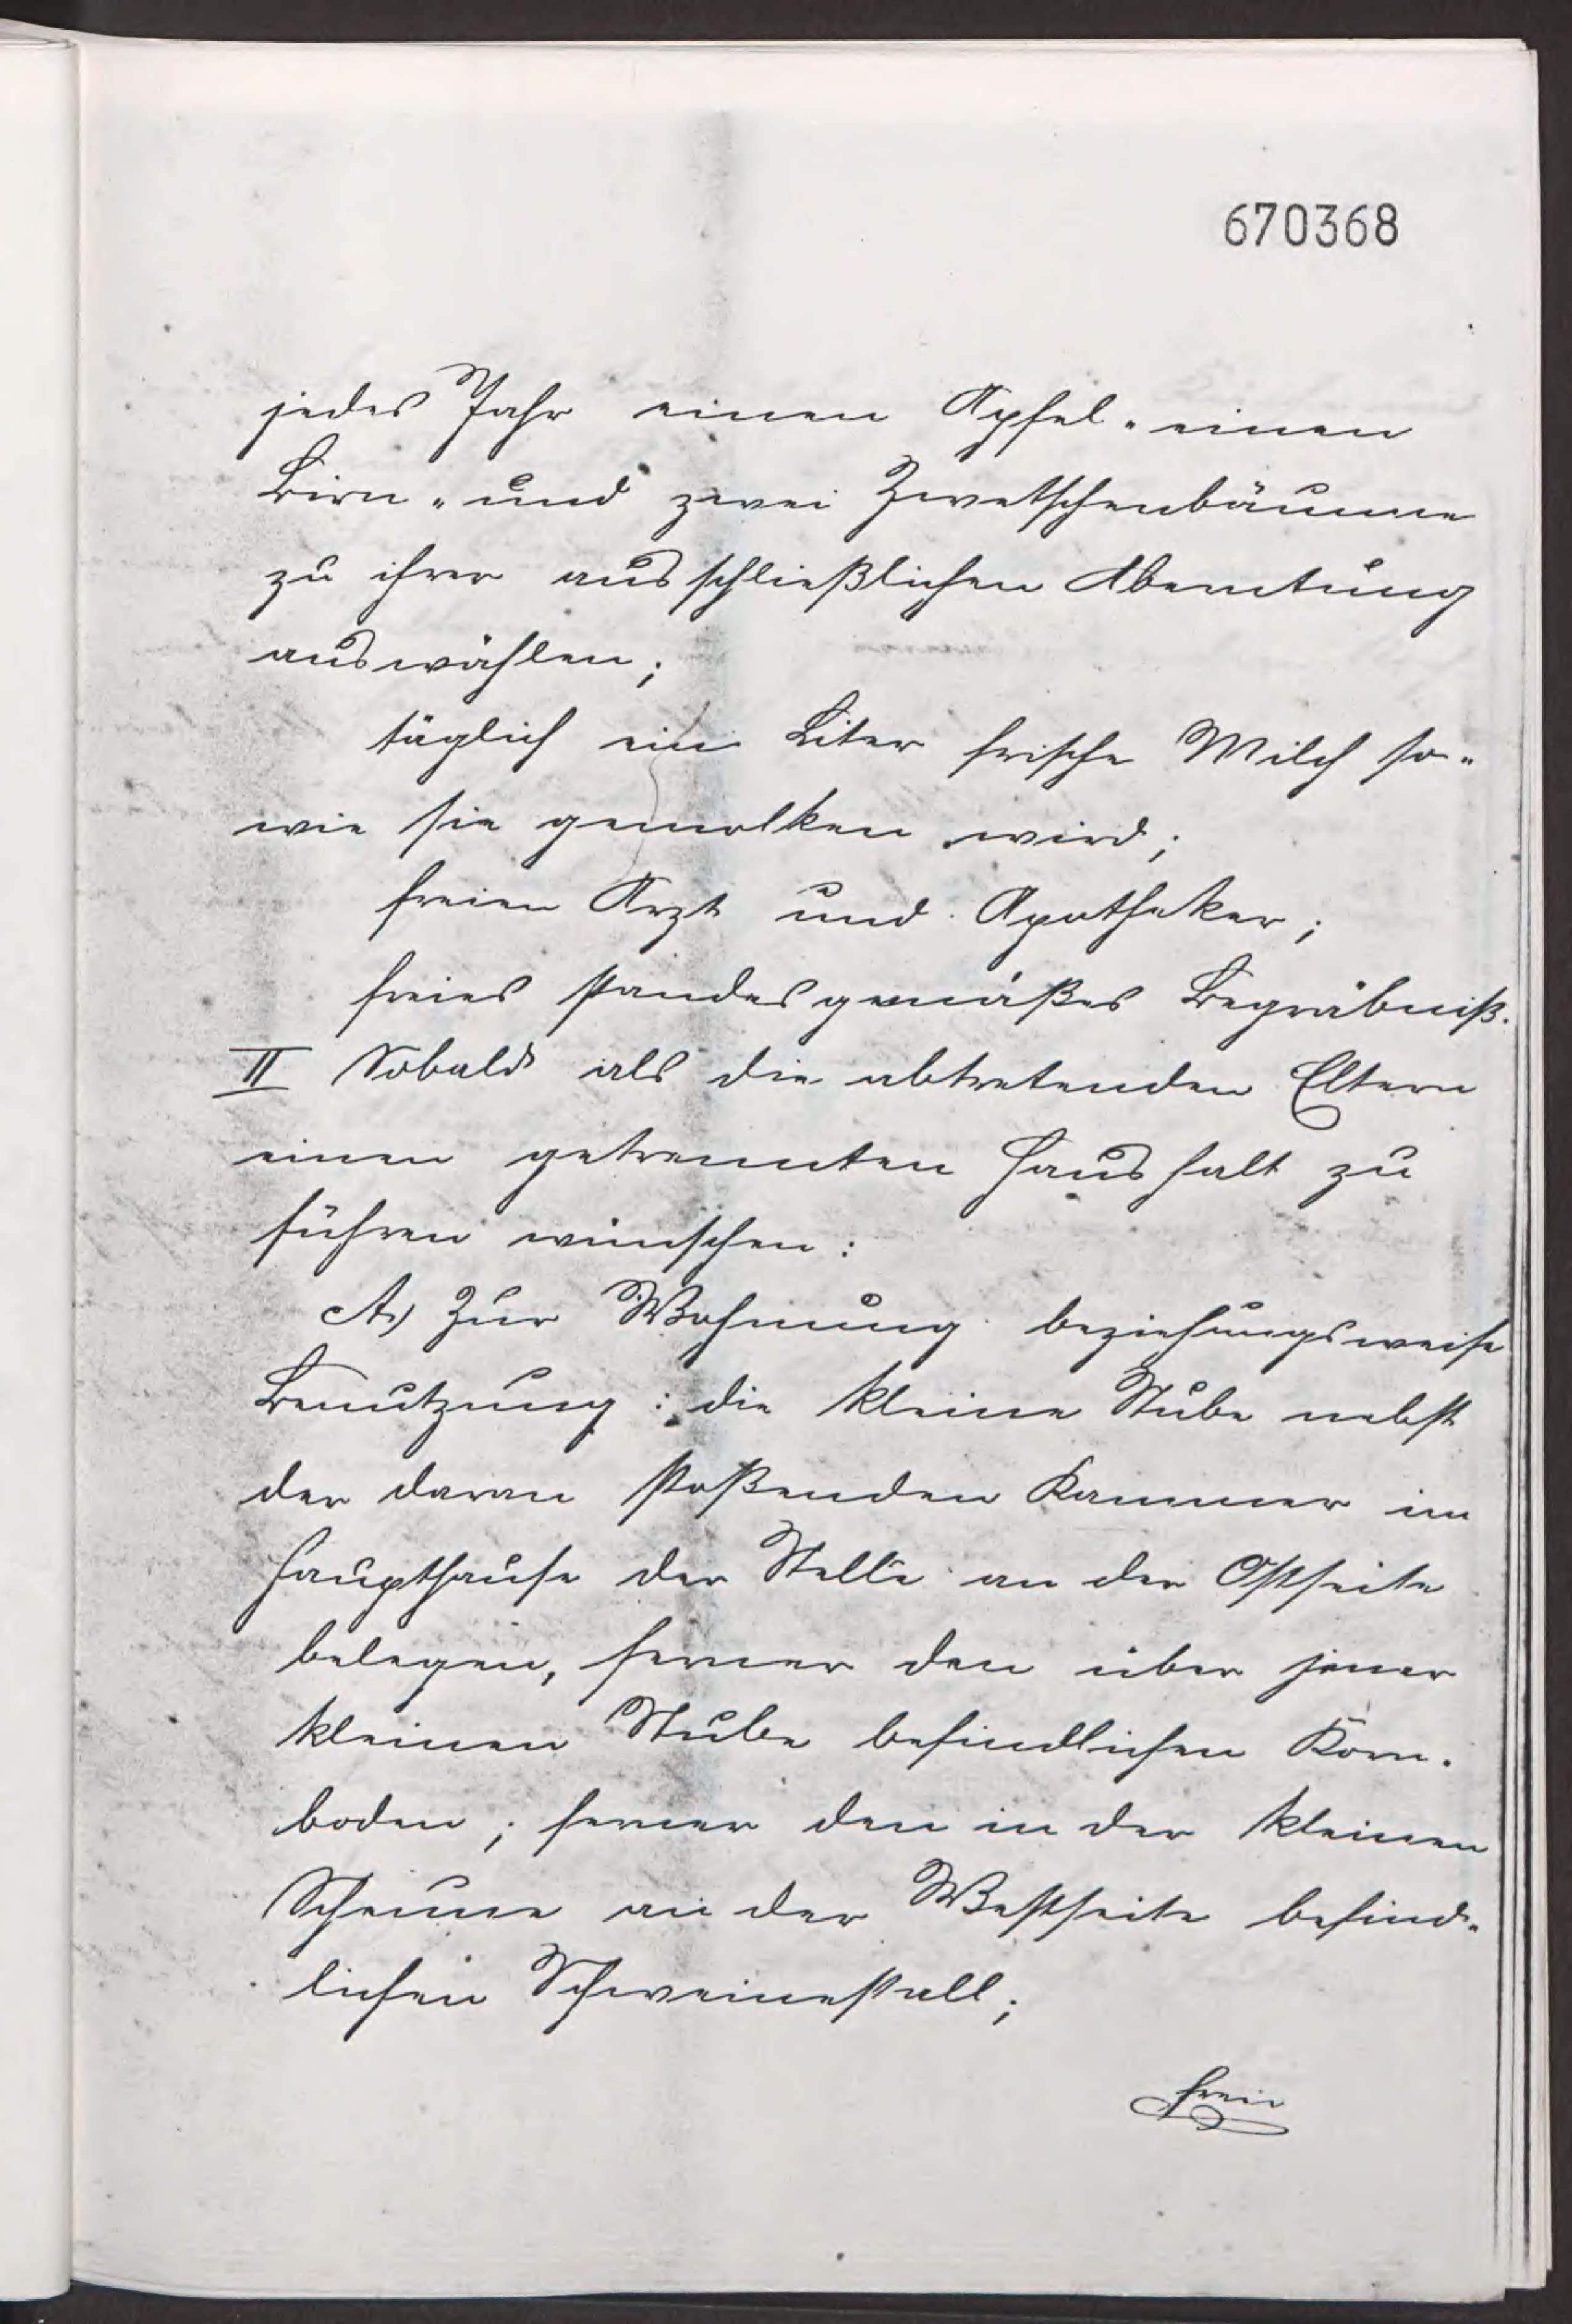 670368
jedes Jahr einen Apfel- einen
Birn- und zwei Zwetschenbäume
zu ihrer ausschließlichen Aberntung
auswählen;
täglich ein Liter frische Milch so-
wie sie gemolken wird;
freien Arzt und Apotheker;
freies standesgemäßes Begräbniß.
II Sobald als die abtretenden Eltern
einen getrennten Haushalt zu
führen wünschen:
A) Zur Wohnung beziehungsweise
Benutzung: die kleine Stube nebst
der daran stoßenden Kammer im
Haupthause der Stelle an der Ostseite
belegen, ferner den über jener
kleinen Stube befindlichen Korn-
boden; ferner den in der kleinen
Scheune an der Westseite befind-
lichen Schweinestall;
freie